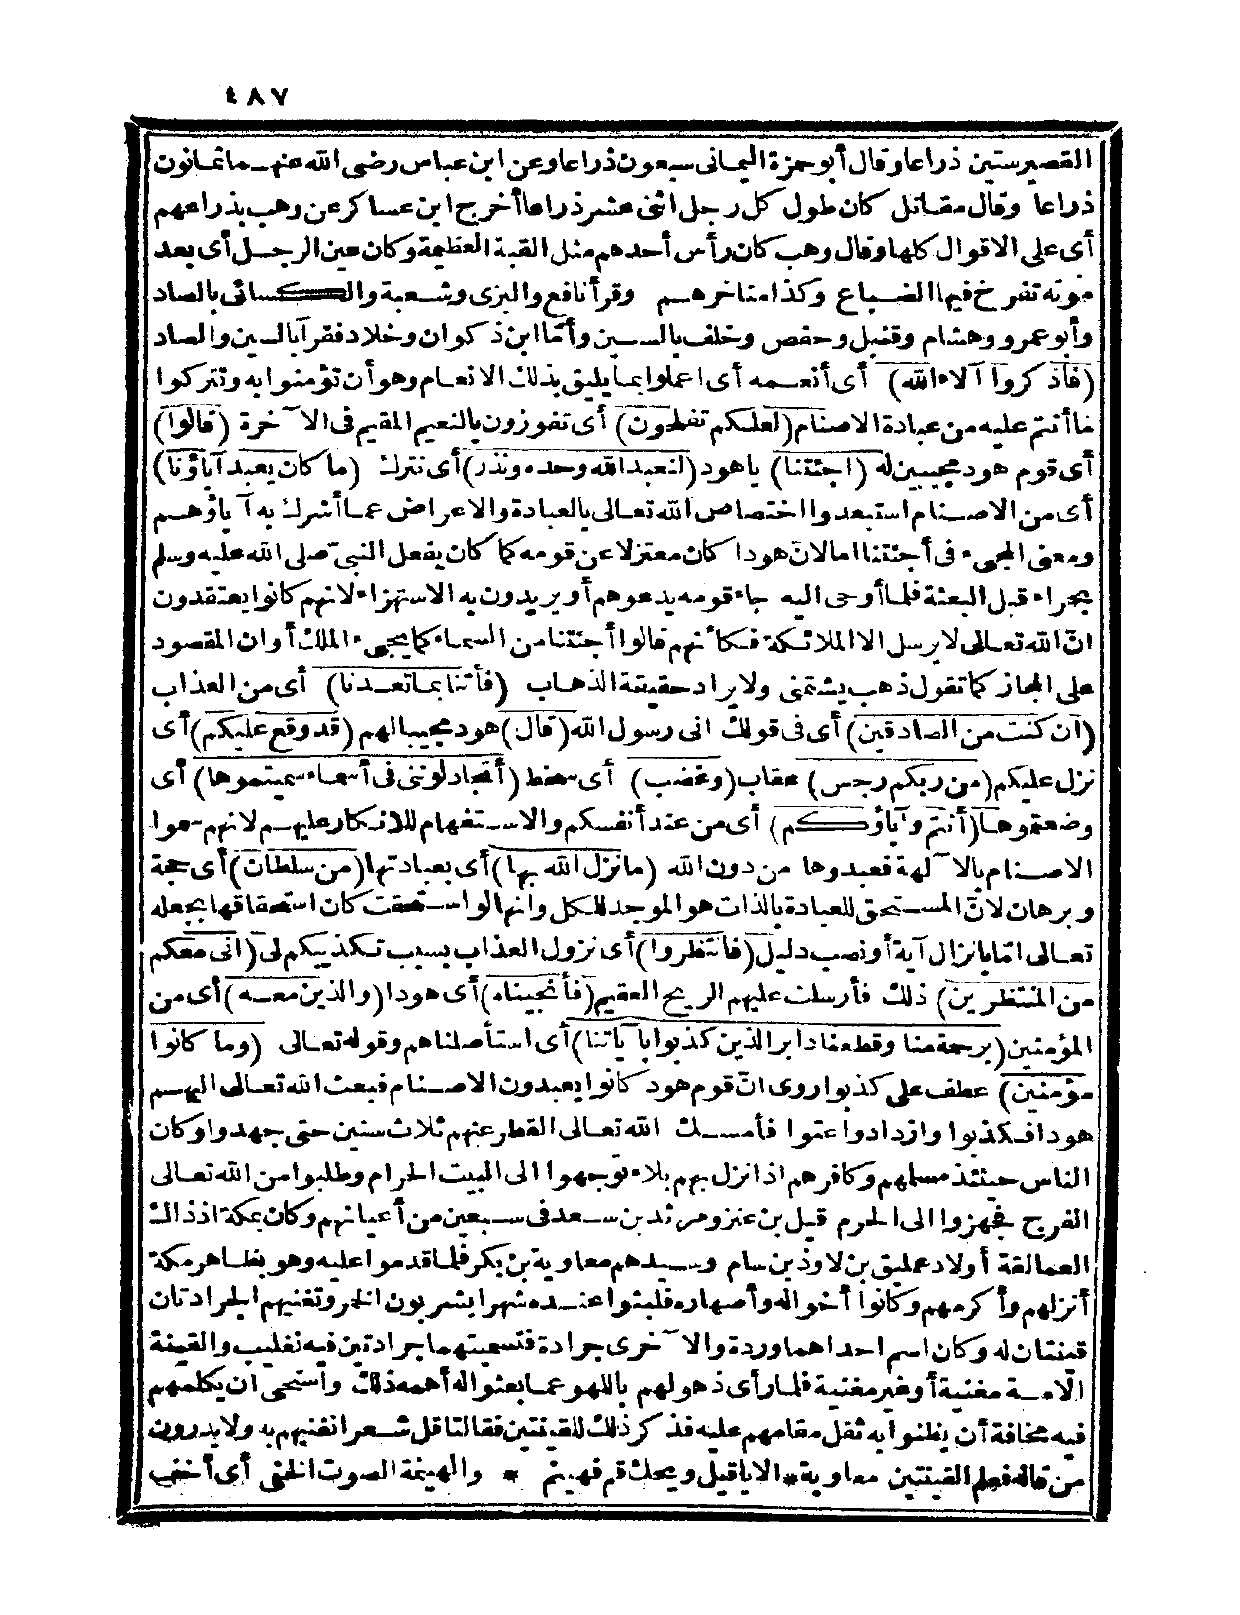 ٤٨٧
القصير ستين ذراعا وقال أبو حمزة اليمانى سبعون ذراعا وعن ابن عباس رضى الله عنهما ثمانون
ذراعا وقال مقاتل كان طول كل رجل اثنى عشر ذراعا أخرج ابن عساكر عن وهب بذراعهم
أى على الاقوال كلها وقال وهب كان رأس أحدهم مثل القبة العظيمة وكان عين الرجل أى بعد
موته تفرخ فيها الضباع وكذا مناخرهم وقرأ نافع والبزى وشعبة والكسائى بالصاد
وأبو عمرو وهشام وقنبل وحفص وخلف بالسين وأمّا ابن ذكوان وخلاد فقرآ بالسين والصاد
(فاذكروا آلاء الله) أى أنعمه أى اعملوا بما يليق بذلك الانعام وهو أن تؤمنوا به وتتركوا
ما أنتم عليه من عبادة الاصنام (لعلكم تفلحون) أى تفوزون بالنعيم المقيم فى الآخرة (قالوا)
أى قوم هود مجيبين له (اجئتنا) يا هود (لنعبد الله وحده ونذر) أى نترك (ما كان يعبد آباؤنا)
أى من الاصنام استبعدوا اختصاص الله تعالى بالعبادة والاعراض عما أشرك به آباؤهم
ومعنى المجىء فى أجئتنا امالانّ هودا كان معتزلا عن قومه كما كان يفعل النبىّ صلى الله عليه وسلم
بحراء قبل البعثة فلما أوحى اليه جاء قومه يدعوهم أو يريدون به الاستهزاء لانهم كانوا يعتقدون
انّ الله تعالى لا يرسل الا الملائكة فكأنهم قالوا أجئتنا من السماء كما يجىء الملك أو ان المقصود
على المجاز كما تقول ذهب يشتمنى ولا يراد حقيقة الذهاب (فأتنا بما تعدنا) أى من العذاب
(ان كنت من الصادقين) أى فى قولك انى رسول الله (قال) هود مجيبا لهم (قد وقع عليكم) أى
نزل عليكم (من ربكم رجس) عقاب (وغضب) أى سخط (أتجادلوننى فى أسماء سميتموها) أى
وضعتموها (أنتم وآباؤكم) أى من عند أنفسكم والاستفهام للانكار عليهم لانهم سموا
الاصنام بالآلهة فعبدوها من دون الله (ما نزل الله بها) أى بعبادتها (من سلطان) أى حجة
وبرهان لانّ المستحق للعبادة بالذات هو الموجد للكل وانها لو استحقت كان استحقاقها بجعله
تعالى امّا بانزال آية أو نصب دليل (فانتظروا) أى نزول العذاب بسبب تكذيبكم لى (انى معكم
من المنتظرين) ذلك فأرسلت عليهم الريح العقيم (فأنجيناه) أى هودا (والذين معه) أى من
المؤمنين (برحمة منا وقطعنا دابر الذين كذبوا بآياتنا) أى استأصلناهم وقوله تعالى (وما كانوا
مؤمنين) عطف على كذبوا روى انّ قوم هود كانوا يعبدون الاصنام فبعث الله تعالى اليهم
هودا فكذبوا وازدادوا عتوا فأمسك الله تعالى القطر عنهم ثلاث سنين حتى جهدوا وكان
الناس حينئذ مسلمهم وكافرهم اذا نزل بهم بلاء توجهوا الى البيت الحرام وطلبوا من الله تعالى
الفرج فجهزوا الى الحرم قيل بن عنز ومرثد بن سعد فى سبعين من أعيانهم وكان بمكة اذ ذاك
العمالقة أولاد عمليق بن لاوذ بن سام وسيدهم معاوية بن بكر فلما قدموا عليه وهو بظاهر مكة
أنزلهم وأكرمهم وكانوا أخواله وأصهاره فلبثوا عنده شهرا يشربون الخمر وتغنيهم الجرادتان
قينتان له وكان اسم احداهما وردة والآخرى جرادة فتسميتهما جرادتين فيه تغليب والقينة
الامة مغنية أو غير مغنية فلما رأى ذهولهم باللهو عما بعثوا له أهمه ذلك واستحى ان يكلمهم
فيه مخافة أن يظنوا به ثقل مقامهم عليه فذكر ذلك للقينتين فقالتا قل شعرا نغنيهم به ولا يدرون
من قاله فعلم القينتين معاوية * ألا يا قيل ويحك قم فهينم * والهينمة الصوت الخفى أى أخف